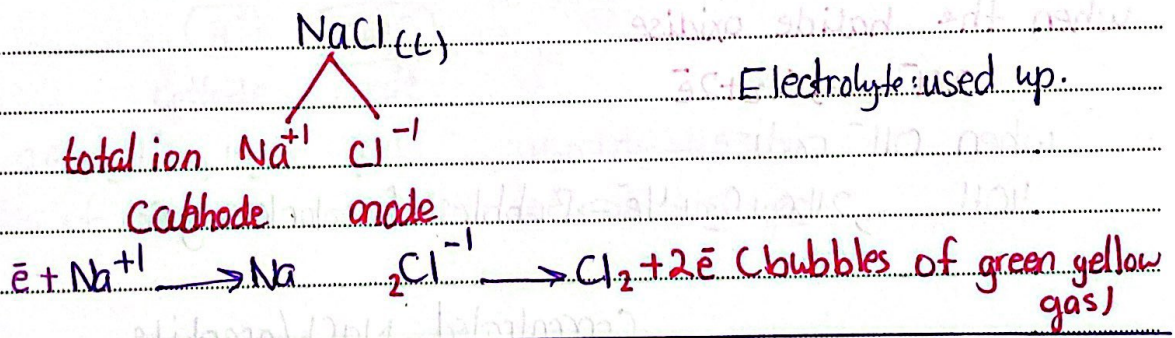 NaCl(l)
Electrolyte: used up.
total ion Na⁺¹ Cl⁻¹
Cathode anode
ē + Na⁺¹ → Na ₂Cl⁻¹ → Cl₂ + 2ē (bubbles of green yellow
gas)